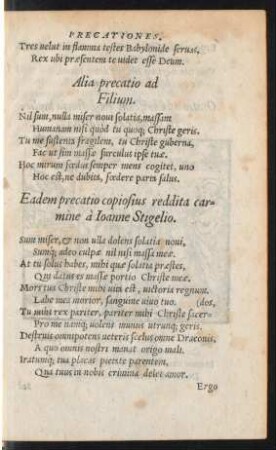 PRECATIONES.
Tres uelut in flamma testes Babylonide seruas,
Rex ubi præsentem te uidet esse Deum.
Alia precatio ad
Filium.
Nil sum, nulla miser noui solatia, massam
Humanam nisi quòd tu quoq; Christe geris.
Tu me sustenta fragilem, tu Christe guberna,
Fac ut sim massæ surculus ipse tuæ.
Hoc mirum fœdus semper mens cogitet, uno
Hoc est, ne dubita, fœdere parta salus.
Eadem precatio copiosius reddita car-
mine à Ioanne Stigelio.
Sum miser, & non ulla dolens solatia noui,
Sumq; adeo cupidæ nil nisi massa meæ.
At tu solus habes, mihi quæ solatia præstes,
Qui datus es massæ portio Christe meæ.
Mors tua Christe mihi uita est, uictoria regnum,
Labe mea morior, sanguine uiuo tuo. (dos,
Tu mihi rex pariter, pariter mihi Christe sacer-
Pro me namq; uolens munus utrunq; geris.
Destruis omnipotens ueteris scelus omne Draconis,
A quo omnis nostri manat origo mali.
Iratumq; tua placas pietate parentem,
Qua tuus in nobis crimina delet amor.
Ergo